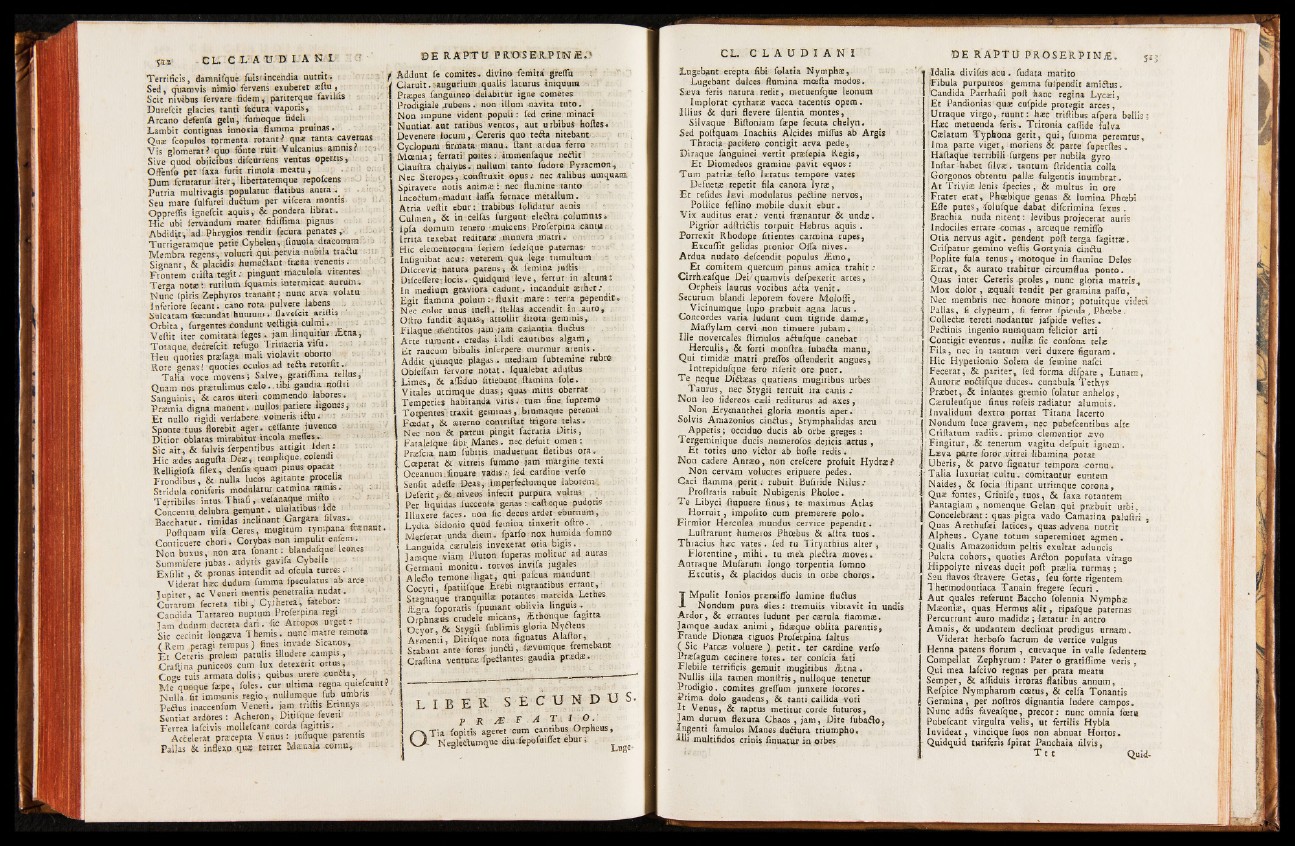 512 CL. CLAUDIANI
Terrificis, damnisque suis incendia nutrit.
Sed, quamvis nimio fervens exuberet æstu,
Scit nivibus servare fidem, pariterque favillis
Durescit glacies tanti secura vaporis,
Arcano defensa gelu, fumoque fideli
Lambit contiguas innoxia flamma pruinas.
Quæ scopulos tormenta rotant? quæ tanta cavernas
Vis glomerat? quo fonte ruit Vulcanius amnis?
Sive quod obicibus discurrens ventus opertis,
Offenso per saxa furit rimosa meatu,
Dum scrutatur iter, libertatemque reposcens
Putria multivagis populatur flatibus antra.
Seu mare sulfurei ductum per viscera montis
Oppressis ignescit aquis, & pondera librat.
Hic ubi servandum mater fidissima pignus
Abdidit, ad Phrygios tendit secura penates,
Turrigeramque petit Cybelen, sinuosa draconum
Membra regens, volucri qui pervia nubila tractu
Signant, & placidis humectant frena venenis.
Frontem crista tegit: pingunt maculosa virentes
Terga notæ: rutilum squamis intermicat aurum.
Nunc spiris Zephyros tranant: nunc arva volatu
Inferiore secant. cano rota pulvere labens
Sulcatam fœcundat humum. flavescit aristis
Orbita, surgentes condunt vestigia culmi.
Vestit iter comitata seges. jam linquitur Ætna,
Totaque decrescit refugo Trinacria visu.
Heu quoties præsaga mali violavit oborto
Rore genas! quoties oculos ad tecta retorsit,
Talia voce movens; Salve, gratissima tellus,
Quam nos prætulimus cælo. tibi gaudia nostri
Sanguinis, & caros uteri commendo labores.
Præmia digna manent. nullos patiere ligones,
Et nullo rigidi versabere vomeris ictu.
Sponte tuus florebit ager. cessante juvenco
Ditior oblatas mirabitur incola messes.
Sic ait, & fulvis serpentibus attigit Iden:
Hic ædes augusta Deæ, templique colendi
Relligiosa silex, densis quam pinus opacat
Frondibus, & nulla lucos agitante procella
Stridula coniferis modulatur carmina ramis.
Terribiles intus Thiasi, vesanaque misto
Concentu delubra gemunt. ululatibus Ide
Bacchatur. timidas inclinant Gargara silvas.
Postquam visa Ceres, mugitum tympana frænant.
Conticuere chori. Corybas non impulit ensem.
Non buxus, non æra sonant: blandasque leones
Summisere jubas. adytis gavisa Cybelle
Exsilit, & pronas intendit ad oscula turres.
Viderat hæc dudum summa speculatus ab arce
Jupiter, ac Veneri mentis penetralia nudat.
Curarum secreta tibi, Cytherea, fatebor:
Candida Tartareo nuptum Proserpina regi
Jam dudum decreta dari. sic Atropos urget:
Sic cecinit longæva Themis. nunc matre remota
(Rem peragi tempus) fines invade Sicanos,
Et Cereris prolem patulis illudere campis,
Crastina puniceos cum lux detexerit ortus,
Coge tuis armata dolis; quibus urere cuncta,
Me quoque sæpe, soles. cur ultima regna quiescunt?
Nulla sit immunis regio, nullumque sub umbris
Pectus inaccensum Veneri. jam tristis Erinnys
Sentiat ardores: Acheron, Ditisque severi
Ferrea lascivis mollescant corda sagittis.
Accelerat præcepta Venus: jussuque parentis
Pallas & inflexo quæ terret Mænala cornu,
DE RAPTU PROSERPINÆ.
Addunt se comites. divino semita gressu
Claruit. augurium qualis laturus iniquum
Præpes sanguineo delabitur igne cometes
Prodigiale rubens. non illum navita tuto.
Non impune vident populi: sed crine minaci
Nuntiat aut ratibus ventos, aut urbibus hostes.
Devenere locum, Cereris quo tecta nitebant
Cyclopum firmata manu. stant ardua ferro
Mœnia; ferrati postes: immensaque nectit
Claustra chalybs. nullum tanto sudore Pyracmon,
Nec Steropes, construxit opus: nec talibus umquam
Spiravere notis animæ: nec flumine tanto
Incoctum maduit lassa fornace metallum.
Atria vestit ebur: trabibus solidatur aenis
Culmen, & in celsas surgunt electra columnas.
Ipsa domum tenero mulcens Proserpina cantu
Irrita texebat redituræ munera matri.
Hic elementorum seriem sedesque paternas
Insignibat acu: veterem qua lege tumultum
Discrevit natura parens, & semina justis
Discessere locis. quidquid leve, fertur in altum:
In medium graviora cadunt. incanduit æther:
Egit flamma polum: fluxit mare: terra pependit.
Nec color unus inest. stellas accendit in auro,
Ostro fundit aquas, attollit litora gemmis,
Filaque mentitos jam jam cælantia fluctus
Arte tument. credas illidi cautibus algam,
Et raucum bibulis inserpere murmur arenis.
Addit quinque plagas. mediam subtemine rubro
Obsessam fervore notat. squalebat adustus
Limes, & assiduo sitiebant stamina sole.
Vitales utrimque duas; quas mitis oberrat
Temperies habitanda viris. tum fine supremo
Torpentes traxit geminas, brumaque perenni
Fœdat, & æterno contristat frigore telas.
Nec non & patrui pingit sacraria Ditis,
Fatalesque sibi Manes. nec defuit omen:
Præscia nam subitis maduerunt fletibus ora.
Cœperat & vitreis summo jam margine texti
Oceanum sinuare vadis: sed cardine verso
Sensit adesse Deas, imperfectumque laborem
Deserit, & niveos infecit purpura vultus
Per liquidas succensa genas: castæque pudoris
Illuxere faces. non sic decus ardet eburnum,
Lydia Sidonio quod femina tinxerit ostro.
Merserat unda diem. sparso nox humida somno
Languida cæruleis invexerat otia bigis.
Jamque viam Pluton superas molitur ad auras
Germani monitu. torvos invisa jugales
Alecto temone ligat, qui pascua mandunt
Cocyti, spatiisque Erebi nigrantibus errant,
Stagnaque tranquillæ potantes marcida Lethes
Ægra soporatis spumant oblivia linguis.
Orphnæus crudele micans, Æthonque sagitta
Ocyor, & Stygii sublimis gloria Nycteus
Armenti, Ditisque nota signatus Alastor,
Stabant ante fores juncti, sævumque fremebant
Crastina venturæ spectantes gaudia prædæ.
LIBER SECUNDUS.
PRÆFATIO.
OTia sopitis ageret cum cantibus Orpheus,
Neglectumque diu seposuisset ebur;
Luge-
CL. CLAUDIANI
Lugebant erepta sibi solatia Nymphæ,
Lugebant dulces flumina mœsta modos.
Sæva feris natura redit, metuensque leonum
Implorat cytharæ vacca tacentis opem.
Illius & duri flevere silentia montes,
Silvaque Bistoniam sæpe secuta chelyn.
Sed postquam Inachiis Alcides missus ab Argis
Thracia pacifero contigit arva pede,
Diraque sanguinei vertit præsepia Regis,
Et Diomedeos gramine pavit equos:
Tum patriæ festo lætatus tempore vates
Desuetæ repetit fila canora lyræ,
Et resides lævi modulatus pectine nervos,
Pollice festino mobile duxit ebur.
Vix auditus erat: venti frænantur & undæ.
Pigrior adstrictis torpuit Hebrus aquis.
Porrexit Rhodope sitientes carmina rupes,
Excussit gelidas pronior Ossa nives.
Ardua nudato descendit populus Æmo,
Et comitem quercum pinus amica trahit:
Cirrhæasque Dei quamvis despexerit artes,
Orpheis laurus vocibus acta venit.
Securum blandi leporem fovere Molossi,
Vicinumque lupo præbuit agna latus.
Concordes varia ludunt cum tigride damæ,
Massylam cervi non timuere jubam.
Ille novercales stimulos actusque canebat
Herculis, & forti monstra subacta manu,
Qui timidæ matri pressos ostenderit angues,
Intrepidusque fero riserit ore puer.
Te neque Dictæas quatiens mugitibus urbes
Taurus, nec Stygii terruit ira canis:
Non leo sidereos cæli rediturus ad axes,
Non Erymanthei gloria montis aper.
Solvis Amazonios cinctus, Stymphalidas arcu
Appetis; occiduo ducis ab orbe greges:
Tergeminique ducis numerosos dejicis artus,
Et toties uno victor ab hoste redis.
Non cadere Antæo, non crescere profuit Hydræ?
Non cervam volucres eripuere pedes.
Caci flamma perit. rubuit Busiride Nilus:
Prostratis rubuit Nubigenis Pholoe.
Te Libyci stupuere sinus; te maximus Atlas
Horruit, imposito cum premerere polo.
Firmior Herculea mundus cervice pependit.
Lustrarunt humeros Phœbus & astra tuos.
Thracius hæc vates. sed tu Tirynthius alter,
Florentine, mihi. tu mea plectra moves.
Antraque Musarum longo torpentia somno
Excutis, & placidos ducis in orbe choros.
IMpulit Ionios præmisso lumine fluctus
Nondum pura dies: tremulis vibravit in undis
Ardor, & errantes ludunt per cærula flammæ.
Jamque audax animi, fidæque oblita parentis,
Fraude Dionæa riguos Proserpina saltus
(Sic Parcæ voluere) petit. ter cardine verso
Præsagum cecinere fores. ter conscia fati
Flebile terrificis gemuit mugitibus Ætna,
Nullis illa tamen monstris, nulloque tenetur
Prodigio. comites gressum junxere sorores.
Prima dolo gaudens, & tanti callida voti
It Venus, & raptus metitur corde futuros,
Jam durum flexura Chaos, jam, Dite subacto,
Ingenti famulos Manes ductura triumpho.
Illi multifidos crinis sinuatur in orbes
DE RAPTU PROSERPINÆ. 513
Idalia divisus acu. sudata marito
Fibula purpureos gemma suspendit amictus.
Candida Parrhasii post hanc regina Lycæi,
Et Pandionias quæ cuspide protegit arces,
Utraque virgo, ruunt: hæc tristibus aspera bellis:
Hæc metuenda feris. Tritonia casside fulva
Cælatum Typhona gerit, qui, summa peremtus,
Ima parte viget, moriens & parte superstes.
Hastaque terribili surgens per nubila gyro
Instar habet silvæ. tantum stridentia colla
Gorgonos obtentu pallæ fulgentis inumbrat.
At Triviæ lenis species, & multus in ore
Frater erat, Phœbique genas & lumina Phœbi
Esse putes, solusque dabat discrimina sexus.
Brachia nuda nitent: levibus projecerat auris
Indociles errare comas, arcuque remisso
Otia nervus agit. pendent post terga sagittæ.
Crispatur gemino vestis Gortynia cinctu
Poplite fusa tenus, motoque in stamine Delos
Errat, & aurato trahitur circumflua ponto.
Quas inter Cereris proles, nunc gloria matris,
Mox dolor, æquali tendit per gramina passu,
Nec membris nec honore minor; potuitque videri
Pallas, si clypeum, si ferret spicula, Phœbe.
Collectæ tereti nodantur jaspide vestes.
Pectinis ingenio numquam felicior arti
Contigit eventus. nullæ sic consona telæ
Fila, nec in tantum veri duxere figuram.
Hic Hyperionio Solem de semine nasci
Fecerat, & pariter, sed forma dispare, Lunam,
Auroræ noctisque duces. cunabula Tethys
Præbet, & infantes gremio solatur anhelos,
Cæruleusque sinus roseis radiatur alumnis.
Invalidum dextro portat Titana lacerto
Nondum luce gravem, nec pubescentibus alte
Cristatum radiis. primo clementior ævo
Fingitur, & tenerum vagitu despuit ignem.
Læva parte soror vitrei libamina potat
Uberis, & parvo signatur tempora cornu.
Talia luxuriat cultu. comitantur euntem
Naides, & socia stipant utrimque corona,
Quæ fontes, Crinise, tuos, & saxa rotantem
Pantagiam, nomenque Gelan qui præbuit urbi,
Concelebrant: quas pigra vado Camarina palustri,
Quas Arethusæi latices, quas advena nutrit
Alpheus. Cyane totum supereminet agmen.
Qualis Amazonidum peltis exultat aduncis
Pulcra cohors, quoties Arcton populata virago
Hippolyte niveas ducit post prælia turmas;
Seu flavos stravere Getas, seu forte rigentem
Thermodontiaca Tanain fregere securi.
Aut quales referunt Baccho solennia Nymphæ
Mæoniæ, quas Hermus alit, ripasque paternas
Percurrunt auro madidæ; lætatur in antro
Amnis, & undantem declinat prodigus urnam.
Viderat herboso sacrum de vertice vulgus
Henna parens florum, curvaque in valle sedentem
Compellat Zephyrum: Pater o gratissime veris,
Qui mea lascivo regnas per prata meatu
Semper, & assiduis irroras flatibus annum,
Respice Nympharum cœtus, & celsa Tonantis
Germina, per nostros dignantia ludere campos.
Nunc adsis faveasque, precor: nunc omnia fœtu
Pubescant virgulta velis, ut fertilis Hybla
Invideat, vincique suos non abnuat Hortos.
Quidquid turiferis spirat Panchaia silvis,
Ttt Quid-